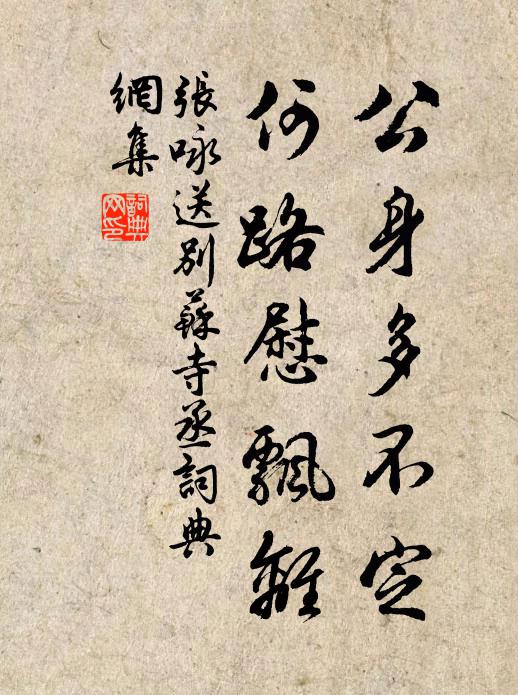 公身多不定
何路慰飄離
張咏送別蘇寺丞詞典
網集
詞典
网印